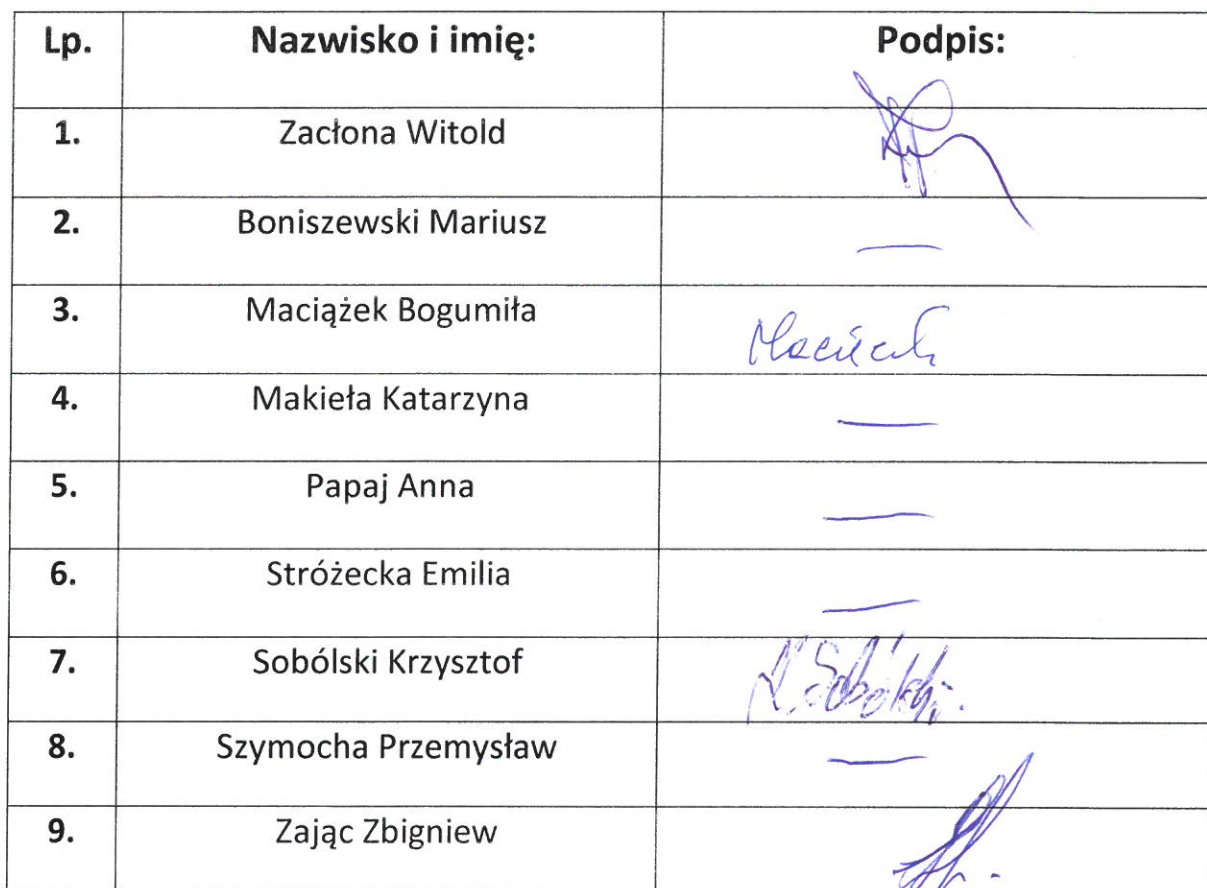 Lp. Nazwisko i imię: Podpis:
1. Zacłona Witold
2. Boniszewski Mariusz —
3. Maciążek Bogumiła
4. Makieła Katarzyna —
5. Papaj Anna —
6. Stróżecka Emilia —
7. Sobólski Krzysztof K. Sobólski
8. Szymocha Przemysław —
9. Zając Zbigniew